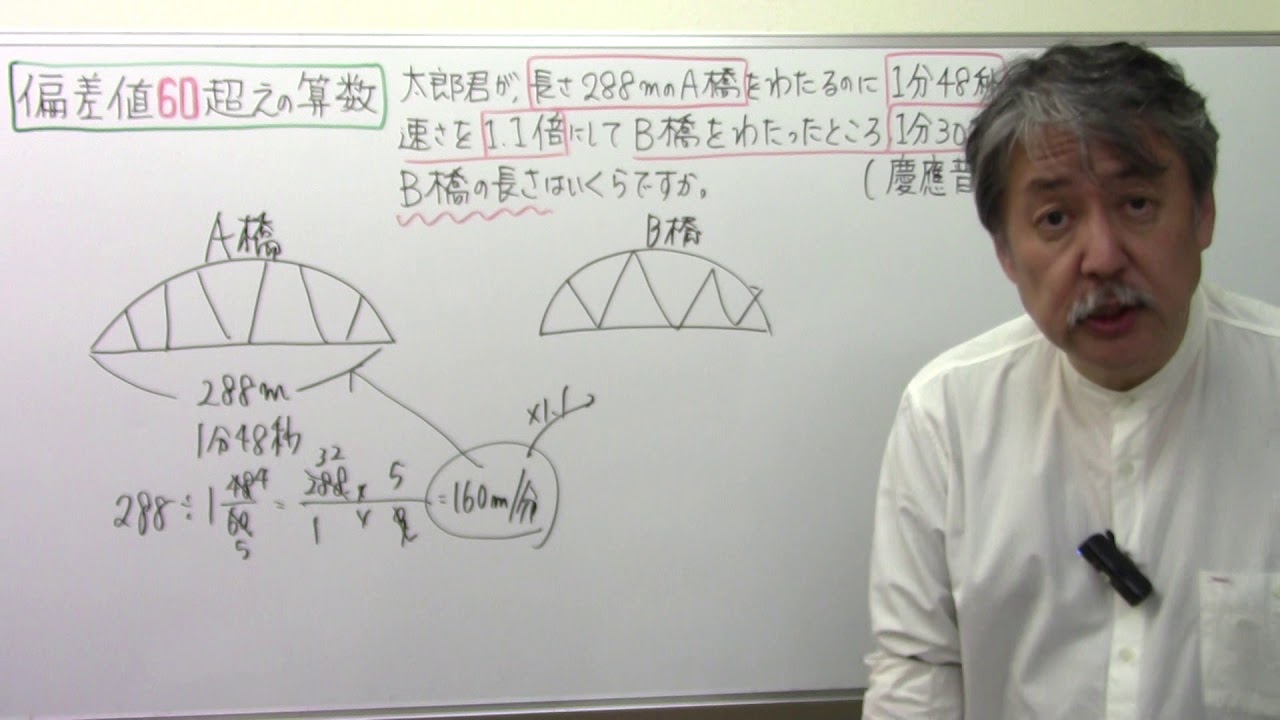 偏差値60超えの算数
太郎君が、長さ288mのA橋をわたるのに1分48秒
速さを1.1倍にしてB橋をわたったところ1分30
B橋の長さはいくらですか。
(慶應普
A橋
B橋
288m
1分48秒
×1.1
32
288÷1 48 4/60 5 = 288×5/1×9 =160m/分